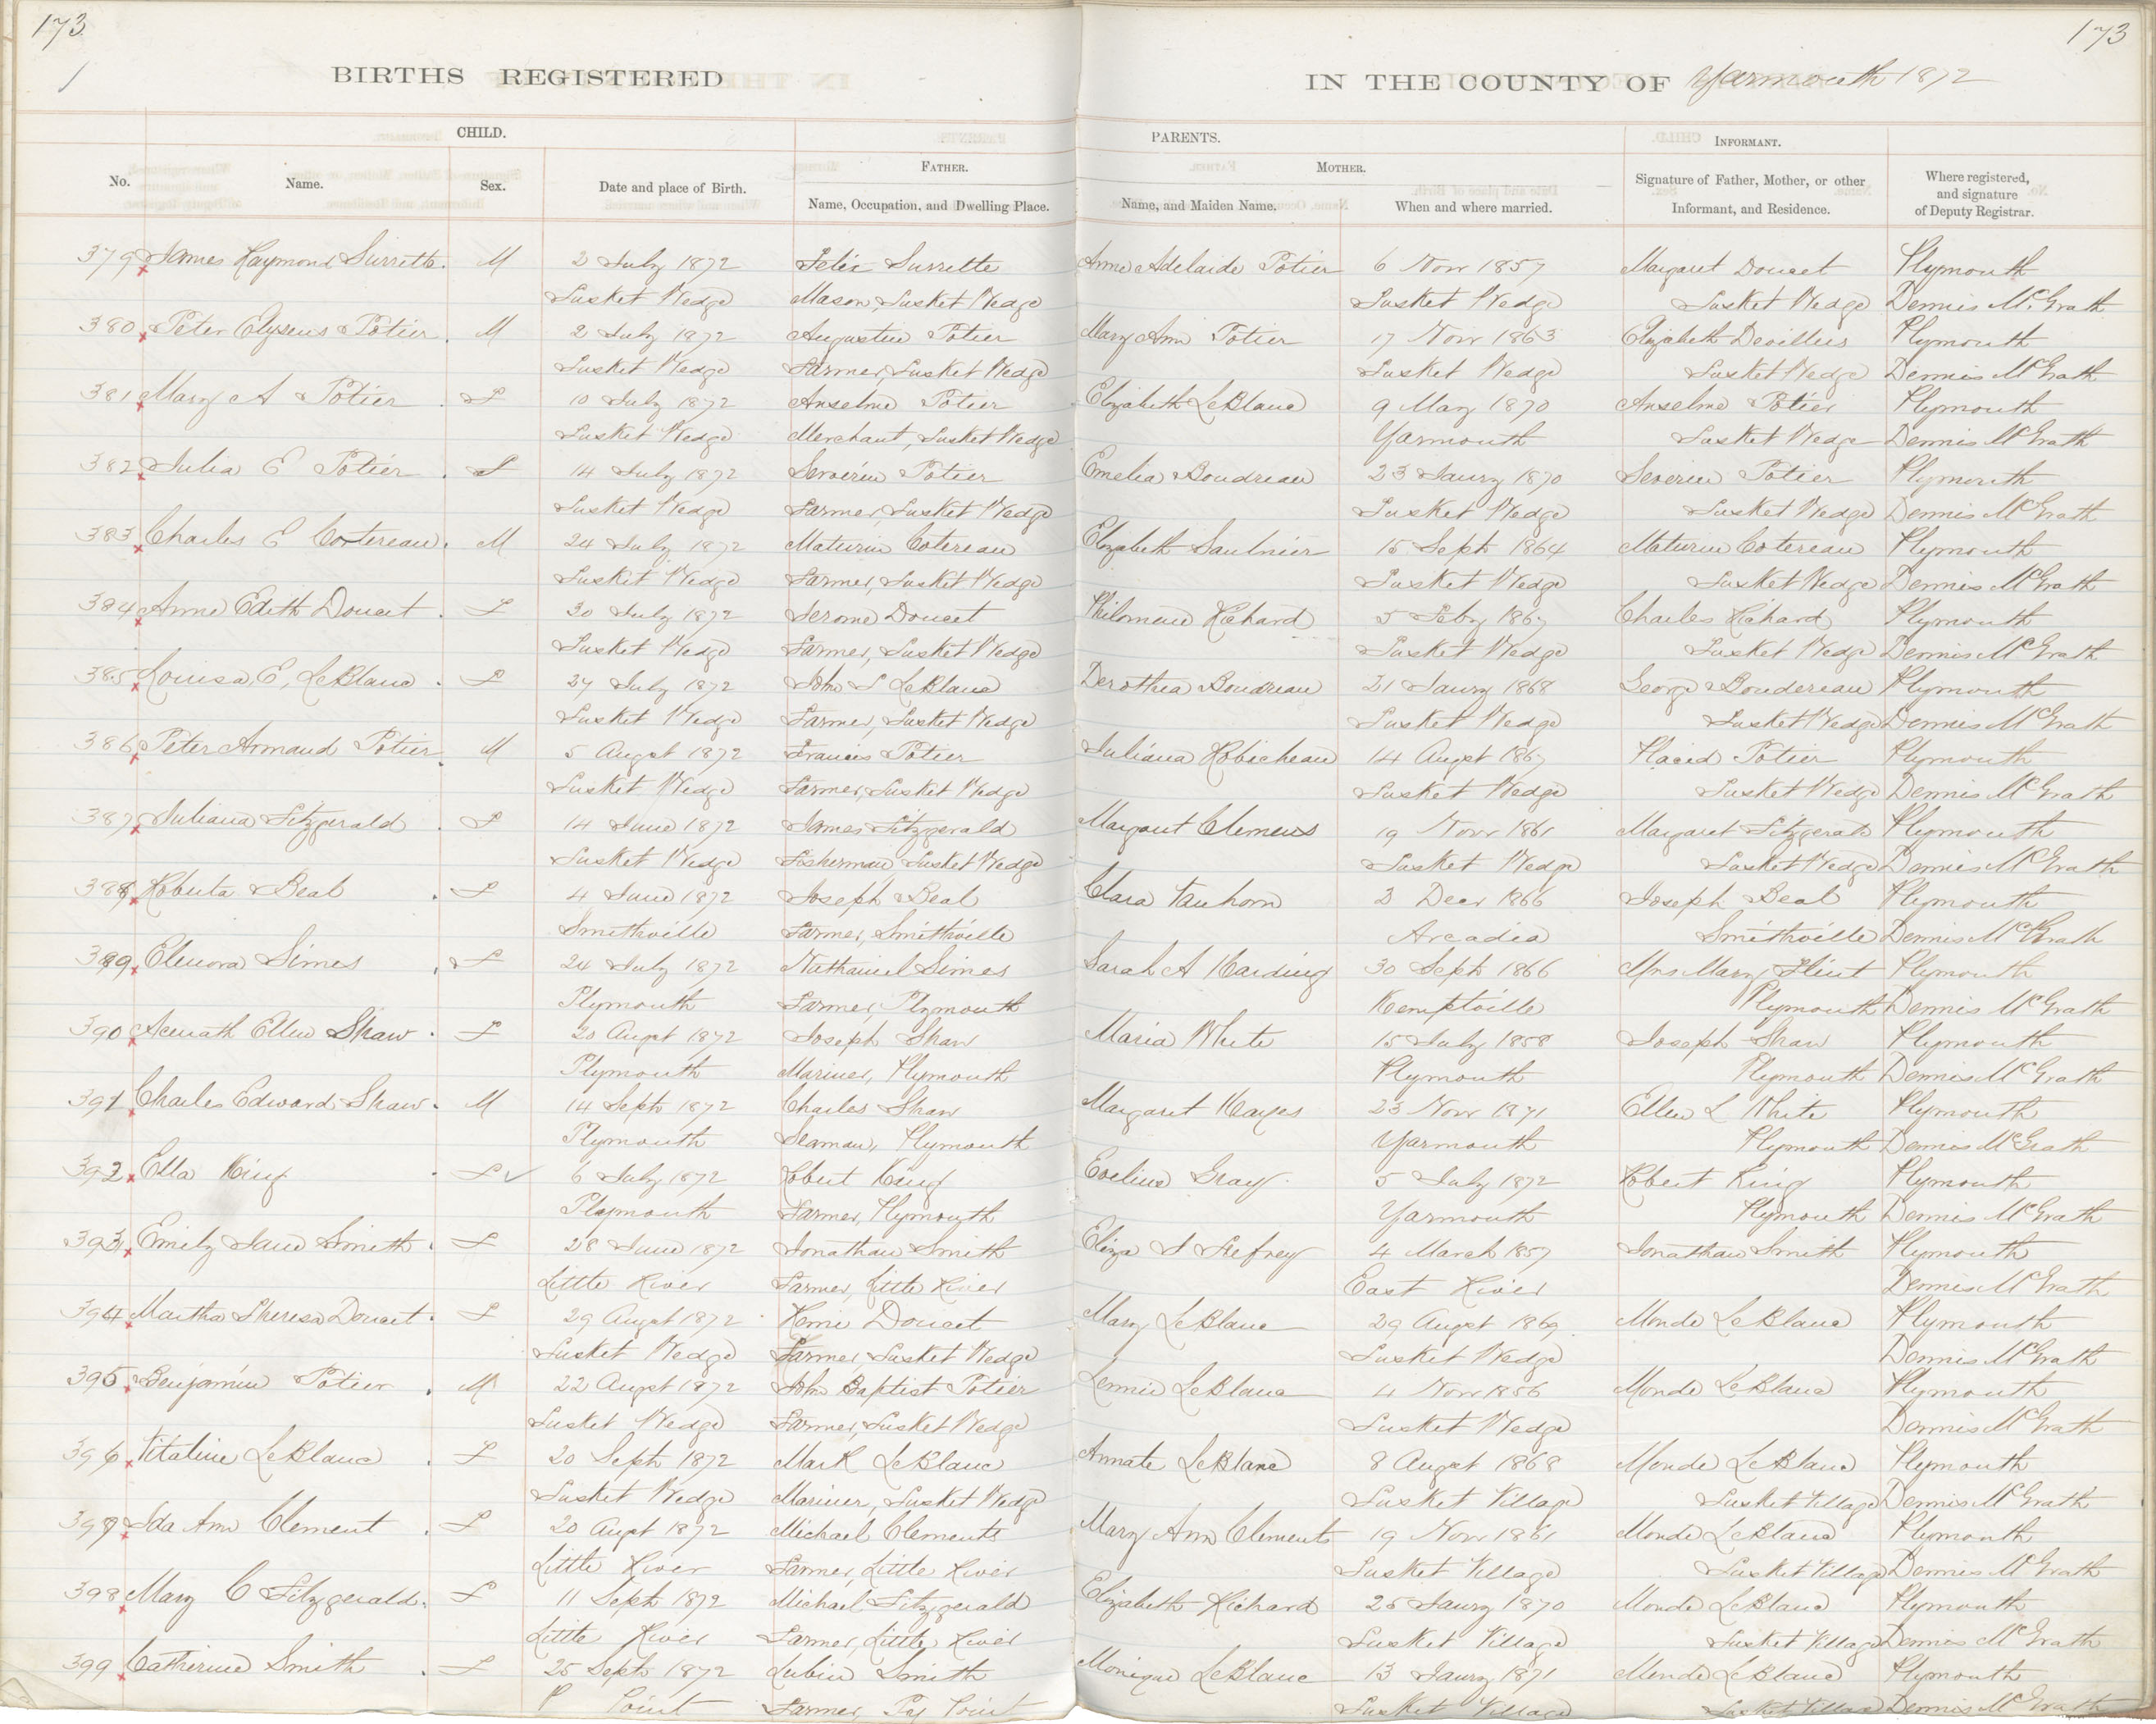 173
173
BIRTHS REGISTERED
IN THE COUNTY OF Yarmouth 1872
CHILD.
PARENTS.
INFORMANT.
FATHER.
MOTHER.
No.
Name.
Sex.
Date and place of Birth.
Name, Occupation, and Dwelling Place.
Name, and Maiden Name.
When and where married.
Signature of Father, Mother, or other
Informant, and Residence.
Where registered,
and signature
of Deputy Registrar.
379 James Raymond Surrette. M 2 July 1872 Felix Surrette Anne Adelaide Potier 6 Novr 1857 Margaret Doucet Plymouth
Tusket Wedge Mason, Tusket Wedge Tusket Wedge Tusket Wedge Dennis McGrath
380 Peter Elyseus Potier. M 2 July 1872 Augustin Potier Mary Ann Potier 17 Novr 1863 Elizabeth Devillers Plymouth
Tusket Wedge Farmer, Tusket Wedge Tusket Wedge Tusket Wedge Dennis McGrath
381 Mary A Potier. F 10 July 1872 Anselme Potier Elizabeth LeBlanc 9 May 1870 Anselme Potier Plymouth
Tusket Wedge Merchant, Tusket Wedge Yarmouth Tusket Wedge Dennis McGrath
382 Julia E Potier. F 14 July 1872 Severin Potier Emelia Boudreau 23 Jaury 1870 Severin Potier Plymouth
Tusket Wedge Farmer, Tusket Wedge Tusket Wedge Tusket Wedge Dennis McGrath
383 Charles E Cortereau. M 24 July 1872 Maturin Cotereau Elizabeth Saulnier 15 Sept 1864 Maturin Cotereau Plymouth
Tusket Wedge Farmer, Tusket Wedge Tusket Wedge Tusket Wedge Dennis McGrath
384 Anne Edith Doucet. F 30 July 1872 Jerome Doucet Philomene Richard 5 Feby 1867 Charles Richard Plymouth
Tusket Wedge Farmer, Tusket Wedge Tusket Wedge Tusket Wedge Dennis McGrath
385 Louisa, E, LeBlanc. F 27 July 1872 John S LeBlanc Dorothea Boudreau 21 Jaury 1868 George Boudereau Plymouth
Tusket Wedge Farmer, Tusket Wedge Tusket Wedge Tusket Wedge Dennis McGrath
386 Peter Armand Potier. M 5 Augst 1872 Francis Potier Juliana Robicheau 14 Augst 1867 Placid Potier Plymouth
Tusket Wedge Farmer, Tusket Wedge Tusket Wedge Tusket Wedge Dennis McGrath
387 Juliana Fitzgerald. F 14 June 1872 James Fitzgerald Margaret Clemens 19 Novr 1861 Margaret Fitzgerald Plymouth
Tusket Wedge Fisherman Tusket Wedge Tusket Wedge Tusket Wedge Dennis McGrath
388 Roberta Beal. F 4 June 1872 Joseph Beal Clara Vanhorn 3 Decr 1866 Joseph Beal Plymouth
Smithville Farmer, Smithville Arcadia Smithville Dennis McGrath
389 Elenora Simes. F 24 July 1872 Nathaniel Simes Sarah A Harding 30 Sept 1866 Mrs Mary Flint Plymouth
Plymouth Farmer, Plymouth Kemptville Plymouth Dennis McGrath
390 Acenath Ellen Shaw. F 20 Augst 1872 Joseph Shaw Maria White 15 July 1858 Joseph Shaw Plymouth
Plymouth Mariner, Plymouth Plymouth Plymouth Dennis McGrath
391 Charles Edward Shaw. M 14 Sept 1872 Charles Shaw Margaret Hayes 23 Novr 1871 Ellen L White Plymouth
Plymouth Seaman, Plymouth Yarmouth Plymouth Dennis McGrath
392 Ella King. F 6 July 1872 Robert King Eveline Gray 5 July 1872 Robert King Plymouth
Plymouth Farmer, Plymouth Yarmouth Plymouth Dennis McGrath
393 Emily Jane Smith. F 28 June 1872 Jonathan Smith Eliza S 4 March 1857 Jonathan Smith Plymouth
Little River Farmer, Little River East River Dennis McGrath
394 Martha Theresa Doucet. F 29 Augst 1872 Remi Doucet Mary LeBlanc 29 Augst 1869 Monde LeBlanc Plymouth
Tusket Wedge Farmer, Tusket Wedge Tusket Wedge Dennis McGrath
395 Benjamin Potier. M 22 Augst 1872 John Baptist Potier LeBlanc 4 Novr 1856 Monde LeBlanc Plymouth
Tusket Wedge Farmer, Tusket Wedge Tusket Wedge Dennis McGrath
396 Vitaline LeBlanc. F 20 Sept 1872 Mark LeBlanc Annate LeBlanc 8 Augst 1868 Monde LeBlanc Plymouth
Tusket Wedge Mariner, Tusket Wedge Tusket Village Tusket Village Dennis McGrath
397 Ida Ann Clement. F 20 Augst 1872 Michael Clements Mary Ann Clements 19 Novr 1861 Monde LeBlanc Plymouth
Little River Farmer, Little River Tusket Village Tusket Village Dennis McGrath
398 Mary C Fitzgerald. F 11 Sept 1872 Michael Fitzgerald Elizabeth Richard 25 Jaury 1870 Monde LeBlanc Plymouth
Little River Farmer, Little River Tusket Village Tusket Village Dennis McGrath
399 Catherine Smith. F 25 Sept 1872 Lubin Smith Monique LeBlanc 13 Jaury 1871 Monde LeBlanc Plymouth
P Point Farmer, Point Tusket Village Tusket Village Dennis McGrath